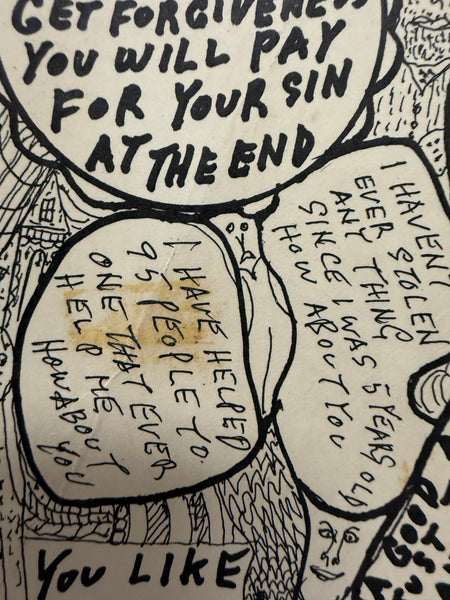 GET FORGIVENESS
YOU WILL PAY
FOR YOUR SIN
AT THE END
I HAVEN'T
STOLEN
EVER ANY THING
SINCE I WAS 5 YEARS OLD
HOW ABOUT YOU
I HAVE HELPED
95 PEOPLE TO
ONE THAT EVER
HELP ME
HOW ABOUT YOU
YOU LIKE
GOD
GOT